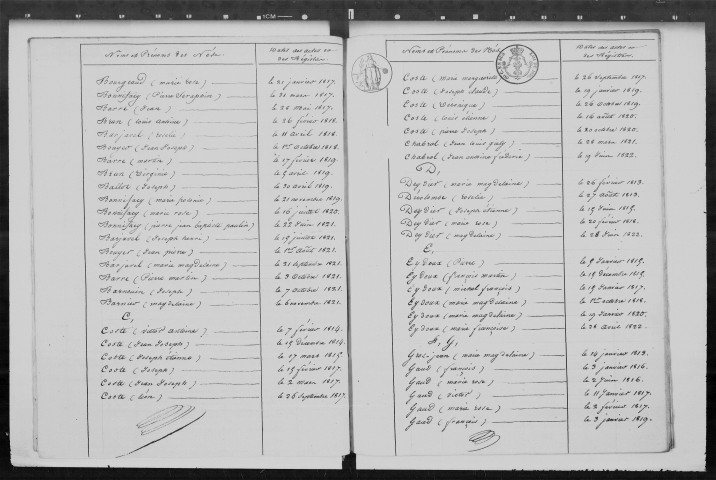 1CM
Noms et Prénoms des Nés.
Dates des actes ou des Registres.
Bourgeaud (marie rose) le 21 janvier 1817.
Bonnefacy (Pierre Seraphin) le 31 mars 1817.
Barre (Jean) le 28 Avril 1817.
Brun (Louis antoine) le 26 février 1818.
Barjavel (rosalie) le 11 avril 1818.
Bouyer (Jean Joseph) le 1er octobre 1818.
Barre (martin) le 17 février 1819.
Brun (Virginie) le 5 avril 1819.
Ballet (Joseph) le 30 avril 1819.
Bonnefacy (marie) le 21 novembre 1819.
Bonnefacy (marie rose) le 16 juillet 1820.
Bonnefacy (pierre jean baptiste paulin) le 22 Juin 1821.
Barjavel (Joseph) le 19 juillet 1821.
Bouyer (Jean pierre) le 1er Août 1821.
Barjavel (marie magdelaine) le 21 septembre 1821.
Barre (Pierre martin) le 3 octobre 1821.
Barnouin (Joseph) le 7 octobre 1821.
Barnier (magdelaine) le 6 novembre 1821.
C,
Coste (victor antoine) le 7 février 1814.
Coste (Jean Joseph) le 15 Décembre 1814.
Coste (Joseph étienne) le 17 mars 1815.
Coste (Joseph) le 15 février 1817.
Coste (Jean Joseph) le 2 mars 1817.
Coste (léon) le 26 Septembre 1817.
Noms et Prénoms des Nés.
Dates des actes ou des Registres.
Coste (marie marguerite) le 26 Septembre 1817.
Coste (Joseph Claude) le 19 janvier 1819.
Coste (Véronique) le 26 octobre 1819.
Coste (louis étienne) le 16 août 1820.
Coste (pierre Joseph) le 20 octobre 1820.
Chabrol (Jean louis) le 28 mars 1821.
Chabrol (Jean antoine frédéric) le 19 Juin 1822.
D,
Deydier (marie magdelaine) le 26 février 1813.
(rosalie) le 27 Août 1813.
Deydier (Joseph étienne) le 15 Juin 1815.
Deydier (marie rose) le 22 février 1818.
Deydier (magdelaine) le 28 Juin 1822.
E,
Eydoux (Pierre) le 9 Janvier 1815.
Eydoux (françois martin) le 19 Décembre 1815.
Eydoux (michel françois) le 15 Janvier 1817.
Eydoux (marie magdelaine) le 1er octobre 1818.
Eydoux (marie magdelaine) le 19 Janvier 1820.
Eydoux (marie françoise) le 28 Août 1822.
F, G,
Gros-jean (marie magdelaine) le 14 janvier 1813.
Gaud (françois) le 3 janvier 1816.
Gaud (marie rose) le 2 Juin 1816.
Gaud (victor) le 11 Janvier 1817.
Gaud (marie rose) le 2 février 1817.
Gaud (françois) le 3 janvier 1819.